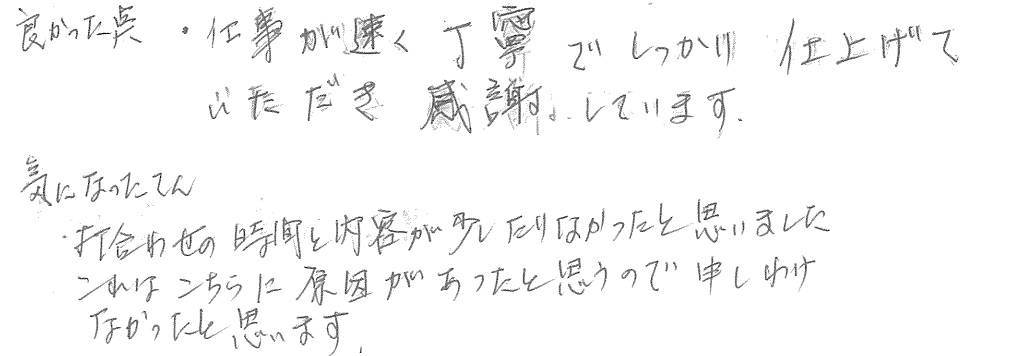 良かった点 ・仕事が速く丁寧でしっかり仕上げて
いただき感謝しています.
気になったてん
・打合わせの時間と内容が少したりなかったと思いました
これはこちらに原因があったと思うので申しわけ
なかったと思います.